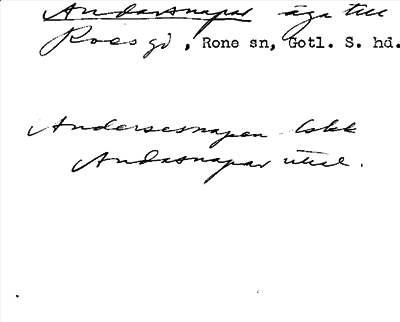 Andarsnapar äga till
Roes gd, Rone sn, Gotl. S. hd.
Andersesnapen lokk
Andasnapar uttal.